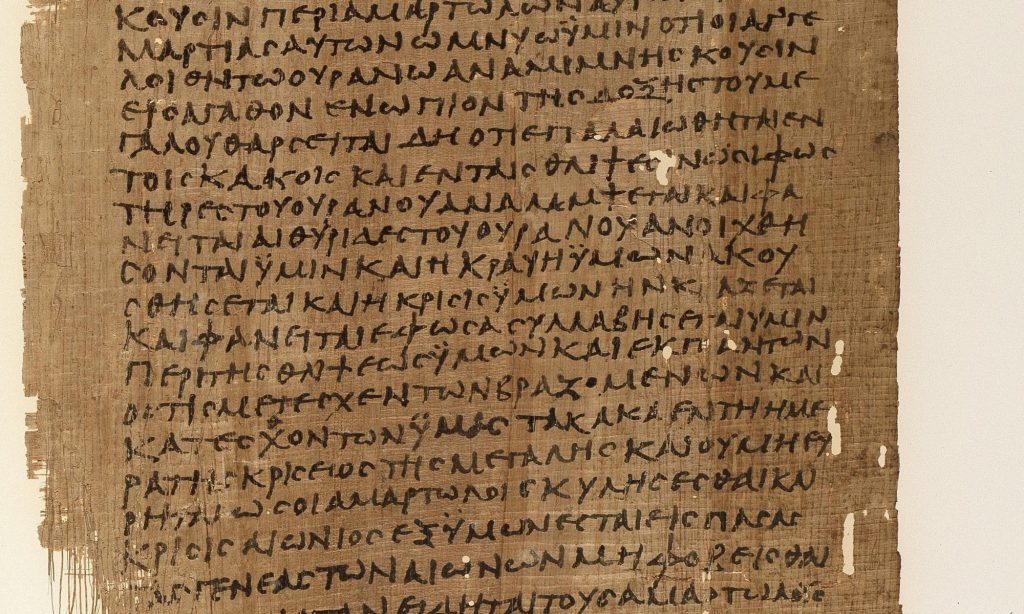 ΚΟΥϹΙΝ ΠΕΡΙ ΑΜΑΡΤΩΛΩΝ
ΜΑΡΤΙΑϹ ΑΥΤΩΝ ΩΜΝΥΩ ΫΜΙΝ ΟΤΙ ΟΙ ΑΓΓΕ
ΛΟΙ ΕΝ ΤΩ ΟΥΡΑΝΩ ΑΝΑΜΙΜΝΗϹΚΟΥϹΙΝ
ΕΙϹ ΑΓΑΘΟΝ ΕΝΩΠΙΟΝ ΤΗϹ ΔΟΞΗϹ ΤΟΥ ΜΕ
ΓΑΛΟΥ ΘΑΡϹΕΙΤΑΙ ΔΗ ΟΤΙ ΕΠΑΛΑΙΩΘΗΤΑΙ ΕΝ
ΤΟΙϹ ΚΑΚΟΙϹ ΚΑΙ ΕΝ ΤΑΙϹ ΘΛΙΨΕϹΙΝ ΩϹΙ ΦΩϹ
ΤΗΡΕϹ ΤΟΥ ΟΥΡΑΝΟΥ ΑΝΑΛΑΜΨΕΤΑΙ ΚΑΙ ΦΑ
ΝΕΙΤΑΙ ΑΙ ΘΥΡΙΔΕϹ ΤΟΥ ΟΥΡΑΝΟΥ ΑΝΟΙΧΘΗ
ϹΟΝΤΑΙ ΫΜΙΝ ΚΑΙ Η ΚΡΑΥΗ ΫΜΩΝ ΑΚΟΥ
ϹΘΗϹΕΤΑΙ ΚΑΙ Η ΚΡΙϹΙϹ ΫΜΩΝ ΗΝ
ΚΑΙ ΦΑΝΕΙΤΑΙ ΕΦ ΩϹΑ ϹΥΛΛΑΒΗϹΕΤΑΙ ΥΜΙΝ
ΠΕΡΙ ΤΗϹ ΘΛΙΨΕΩϹ ΫΜΩΝ ΚΑΙ ΕΚ ΠΑΝΤΩΝ
ΟϹΤΙϹ ΜΕΤΕϹΧΕΝ ΤΩΝ ΒΡΑΖΟΜΕΝΩΝ ΚΑΙ
ΚΑΤΕϹΧΟΝΤΩΝ ΫΜΑϹ ΤΑ ΚΑΚΑ ΕΝ ΤΗ ΗΜΕ
ΡΑ ΤΗϹ ΚΡΙϹΕΩϹ ΤΗϹ ΜΕΓΑΛΗϹ ΚΑΙ ΟΥ ΜΗ ΕΥ
ΡΗΤΑΙ ΩϹ ΟΙ ΑΜΑΡΤΩΛΟΙ ϹΚΥΛΗϹΕϹΘΑΙ ΚΑΙ
ΚΡΙϹΙϹ ΑΙΩΝΙΟϹ ΕΞ ΫΜΩΝ ΕϹΤΑΙ ΕΙϹ ΠΑϹΑϹ
ΤΑϹ ΓΕΝΕΑϹ ΤΩΝ ΑΙΩΝΩΝ ΜΗ ΦΟΒΕΙϹΘΑΙ
ΤΟΥϹ ΑΜΑΡΤΩΛΟΥϹ